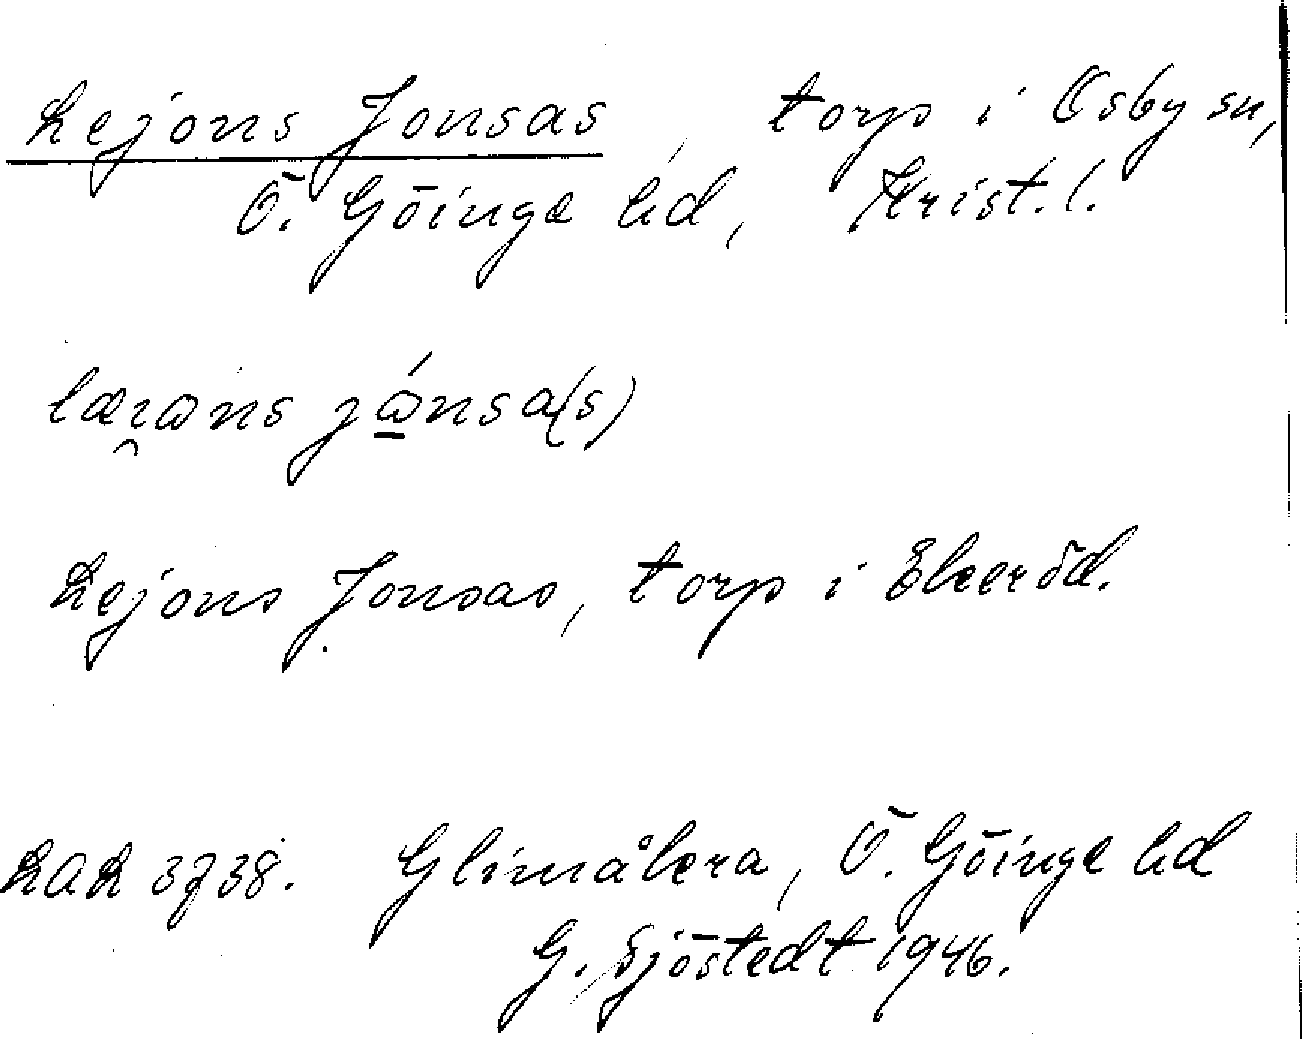 Lejons Jonsas, torp i Osby sn,
Ö. Göinge hd, Krist. l.
læıωns jώnsa(s)
Lejons Jonsas, torp i Ekeröd.
LAL 3738. Glimåkra, Ö. Göinge hd
G. Sjöstedt 1946.